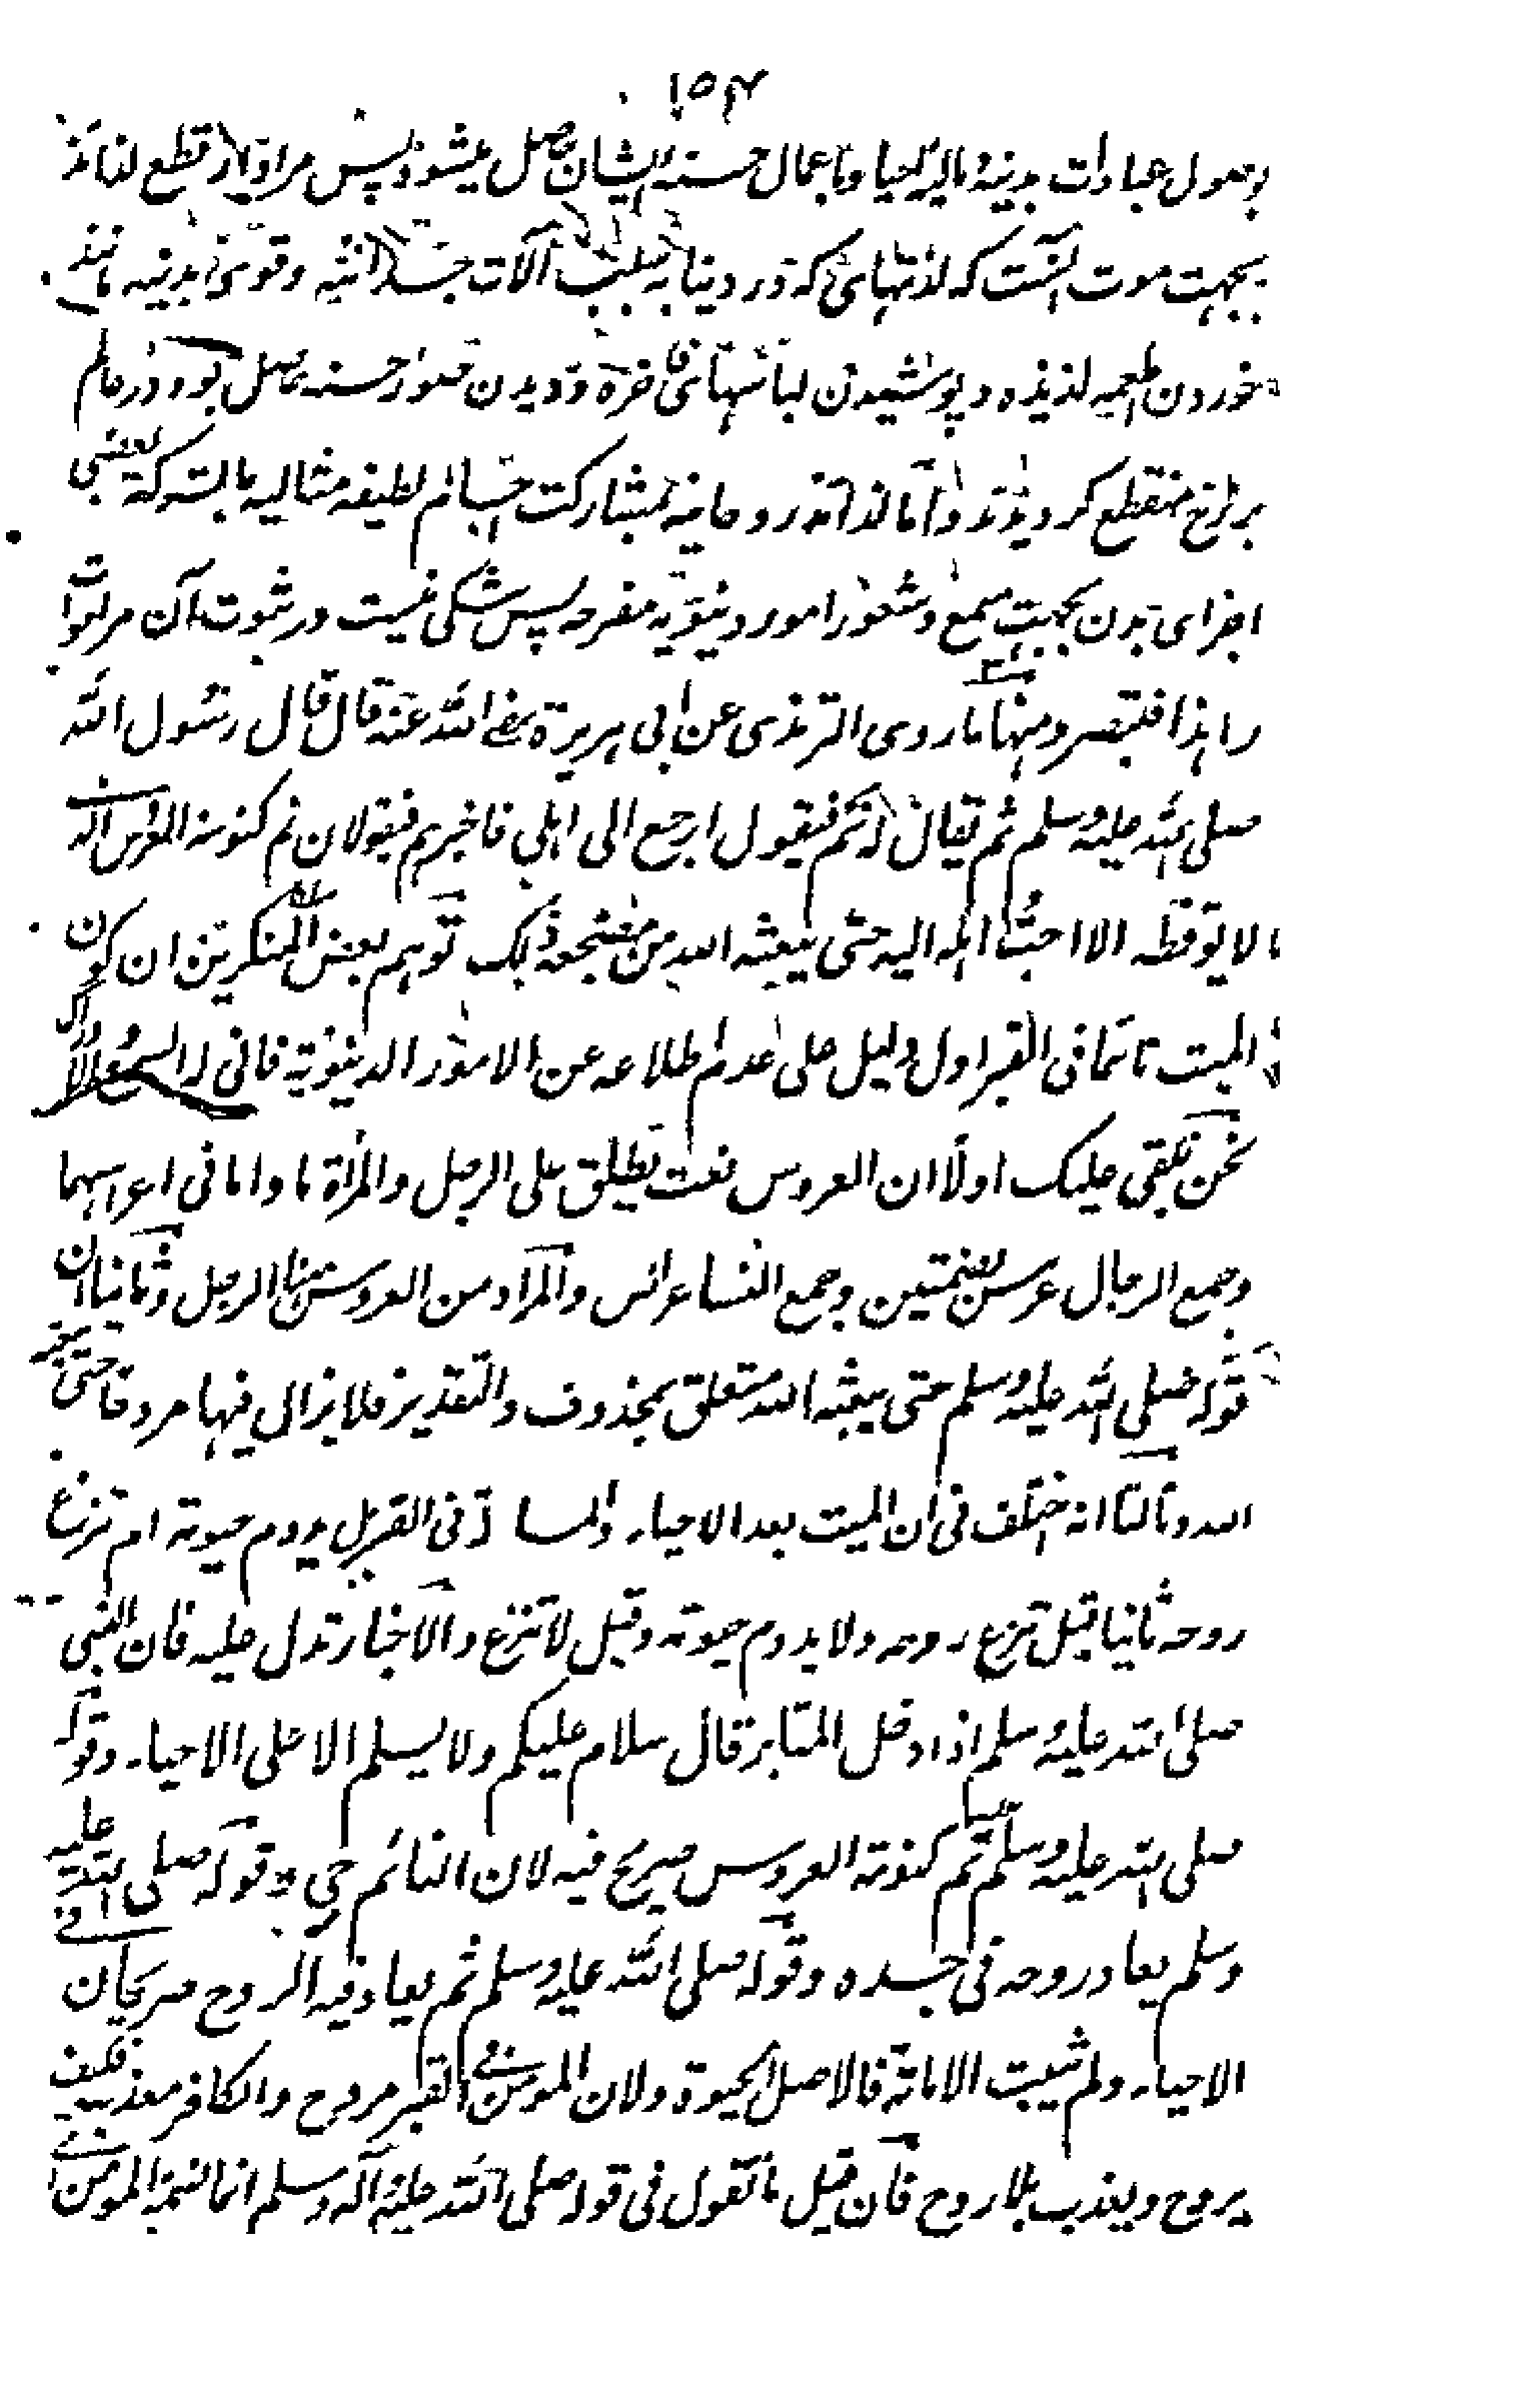 ۱۵۴
بوصول عبادات بدنیه و مالیه احیا و باعمال حسنه ایشان حاصل میشود پس مراد از قطع لذائذ
بجهت موت آنست که لذتهای که در دنیا به سبب آلات جسدانیه و قوی بدنیه مانند
خوردن اطعمه لذیذه و پوشیدن لباسهای فاخره و دیدن صور حسنه حاصل بود در عالم
برزخ منقطع گردیدند و اما لذائذ روحانیه بمشارکت اجسام لطیفه مثالیه یا بشرکة بعضی
اجزای بدن بجهت سمع و شعور امور دنیویه مفرحه پس شکی نیست در ثبوت آن مر اموات
را هذا فتبصر ومنها ما روی الترمذی عن ابی هریرة رضی الله عنه قال قال رسول الله
صلی الله علیه وسلم ثم یقال له نم فیقول ارجع الی اهلی فاخبرهم فیقولان نم کنومة العروس الذی
لا یوقظه الا احب اهله الیه حتی یبعثه الله من مضجعه ذلک توهم بعض المنکرین ان کون
المیت نائما فی القبر اول دلیل علی عدم اطلاعه عن الامور الدنیویة فانی له السمع والادراک
نحن نلقی علیک اولا ان العروس نعت یطلق علی الرجل والمرأة ما داما فی اعراسهما
وجمع الرجال عرس بضمتین وجمع النسا عرائس والمراد من العروس هنا الرجل وثانیا ان
قوله صلی الله علیه وسلم حتی یبعثه الله متعلق بمحذوف والتقدیر فلا یزال فیها مروحا حتی یبعثه
الله وثالثا انه اختلف فی ان المیت بعد الاحیاء والمساءلة فی القبر هل یدوم حیوته ام تنزع
روحه ثانیا قیل تنزع روحه ولا یدوم حیوته وقیل لا تنزع والاخبار تدل علیه فان النبی
صلی الله علیه وسلم اذا دخل المقابر قال سلام علیکم ولا یسلم الا علی الاحیاء وقوله
صلی الله علیه وسلم نم کنومة العروس صریح فیه لان النائم حی وقوله صلی الله علیه
وسلم یعاد روحه فی جسده وقوله صلی الله علیه وسلم ثم یعاد فیه الروح صریحان فی
الاحیاء ولم یثبت الاماتة فالاصل الحیوة ولان المومن فی القبر مروح والکافر معذب فکیف
یروح ویعذب بلا روح فان قیل ما تقول فی قوله صلی الله علیه وآله وسلم انما نسمة المومن